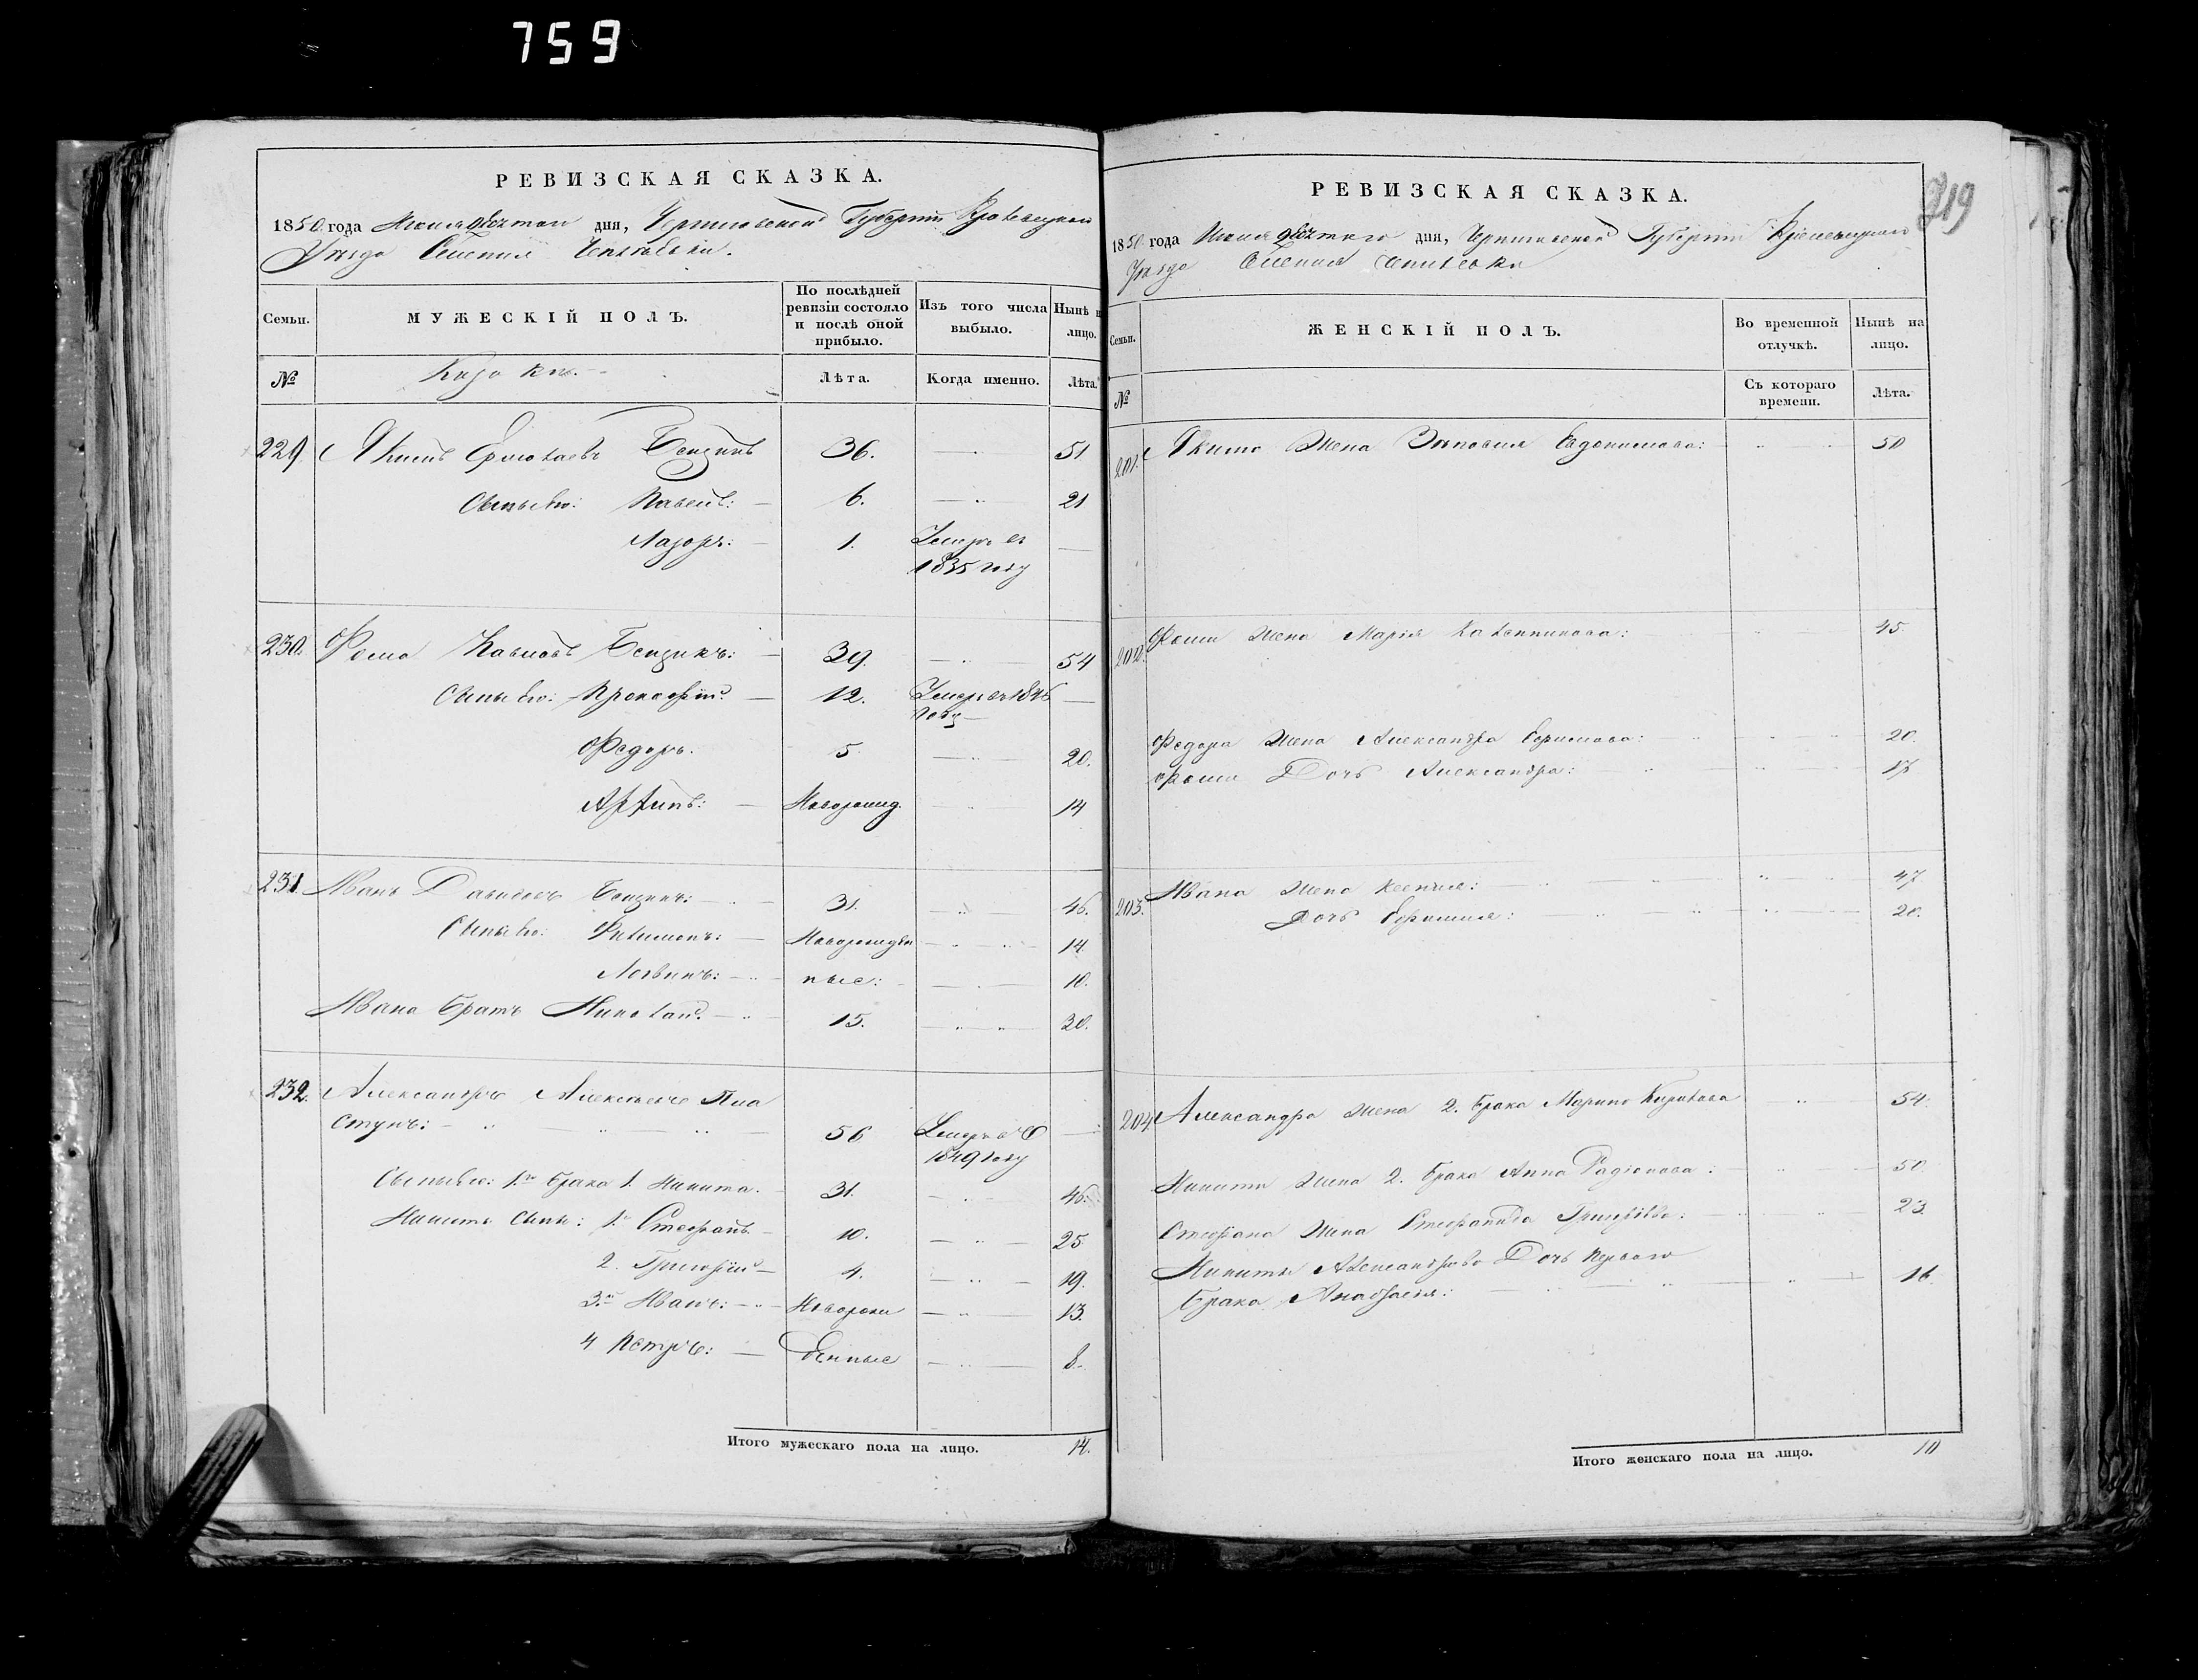 759
РЕВИЗСКАЯ СКАЗКА.
1850 года Июня дня, Черниговской Губернiи Кролевецкаго
Уѣзда Селенiя
Семьи. МУЖЕСКIЙ ПОЛЪ. По послѣдней ревизiи состояло и послѣ оной прибыло. Изъ того числа выбыло. Нынѣ н лицо.
№ Казаки. Лѣта. Когда именно. Лѣта.
229. Якимъ Бендикъ 36. 51
Сыновья: Павелъ: 6. 21
Лазоръ: 1. Умеръ въ
1835 году
230. Фома Бендикъ: 39. 54
Сыновья: Прокофiй 12. Умеръ въ 1846
году
Федоръ. 5 20.
Новорожд. 14
231. Иванъ Бендикъ: 31. 46.
Сыновья: Филимонъ: Новорожден 14.
Логвинъ: ные: 10.
Ивана братъ Николай 15. 30.
232. Александръ Алексѣевъ Пла
стунъ: 56 Умеръ въ
1849 году
Сыновья: 1го брака 1. Никита. 31. 46.
Никиты сыны: 1й Стефанъ 10. 25
2. Григорiй 4. 19.
3й Иванъ: Новорож 13.
4 Петръ: денные 8.
Итого мужескаго пола на лицо. 14.
719
РЕВИЗСКАЯ СКАЗКА.
1850 года Июня дня, Черниговской Губернiи Кролевецкаго
Уѣзда Селенiя
Семьи. ЖЕНСКIЙ ПОЛЪ. Во временной отлучкѣ. Нынѣ на лицо.
№ Съ котораго времени. Лѣта.
201. Якима жена Зиновiя Евдокимова: 50
202. Фомы жена Марiя 45.
Федора жена Александра Ефимова: 20.
Фомы Дочь Александра:
203. Ивана жена Ксенiя: 47
Дочь Ефимiя: 20.
204. Александра жена 2. брака Марина Кирилова 54.
Никиты жена 2. брака Анна Радiонова: 50.
Стефана жена Стефанида Григорьева: 23.
Никиты Александрова Дочь перваго
брака Анастасiя: 16
Итого женскаго пола на лицо. 10